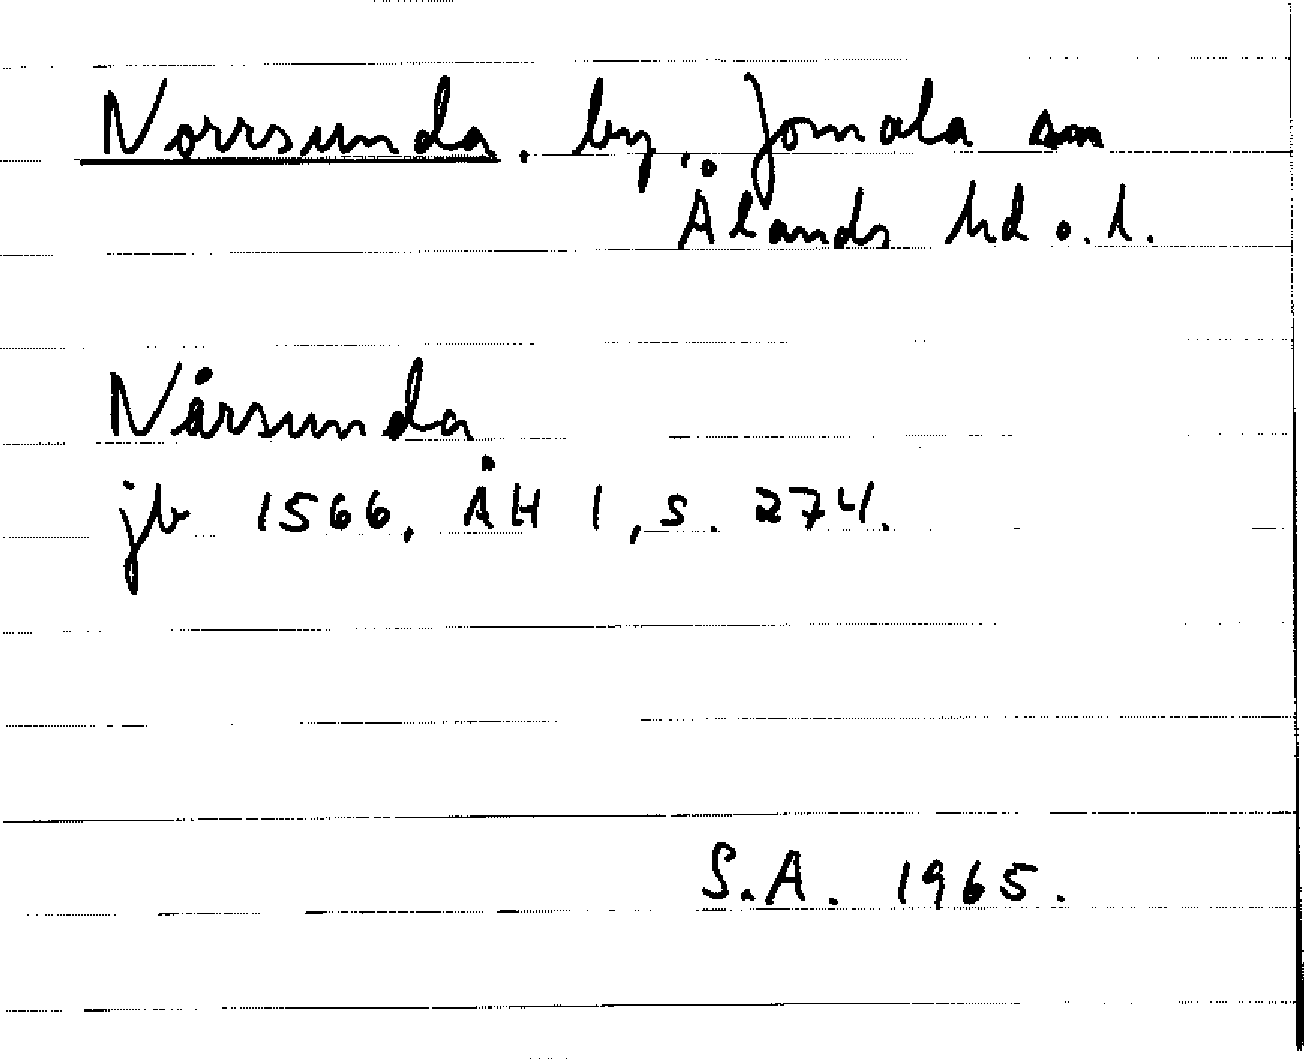 Norrsunda. by. Jomala sn
Ålands hd o. l.
Nårsunda
jb 1566, ÅH 1, s. 274.
S.A. 1965.